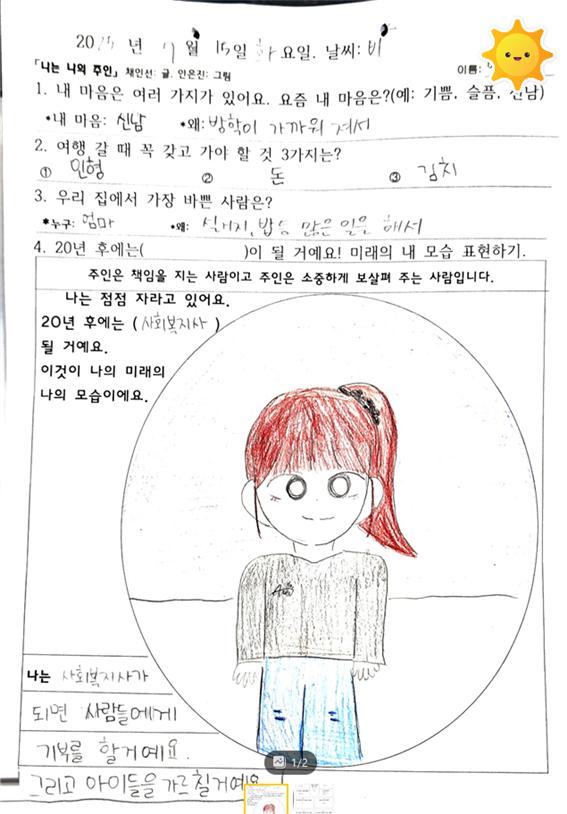 2025 년 7 월 15일 화 요일. 날씨: 비
「나는 나의 주인」 채인선: 글. 안은진: 그림 이름:
1. 내 마음은 여러 가지가 있어요. 요즘 내 마음은?(예: 기쁨, 슬픔, 신남)
*내 마음: 신남 *왜: 방학이 가까워 져서
2. 여행 갈 때 꼭 갖고 가야 할 것 3가지는?
① 인형 ② 돈 ③ 김치
3. 우리 집에서 가장 바쁜 사람은?
*누구: 엄마 *왜: 설거지, 밥 등 많은 일을 해서
4. 20년 후에는( )이 될 거예요! 미래의 내 모습 표현하기.
주인은 책임을 지는 사람이고 주인은 소중하게 보살펴 주는 사람입니다.
나는 점점 자라고 있어요.
20년 후에는 ( 사회복지사 )
될 거예요.
이것이 나의 미래의
나의 모습이에요.
나는 사회복지사가
되면 사람들에게
기부를 할거예요.
그리고 아이들을 가르칠거예요
1/2